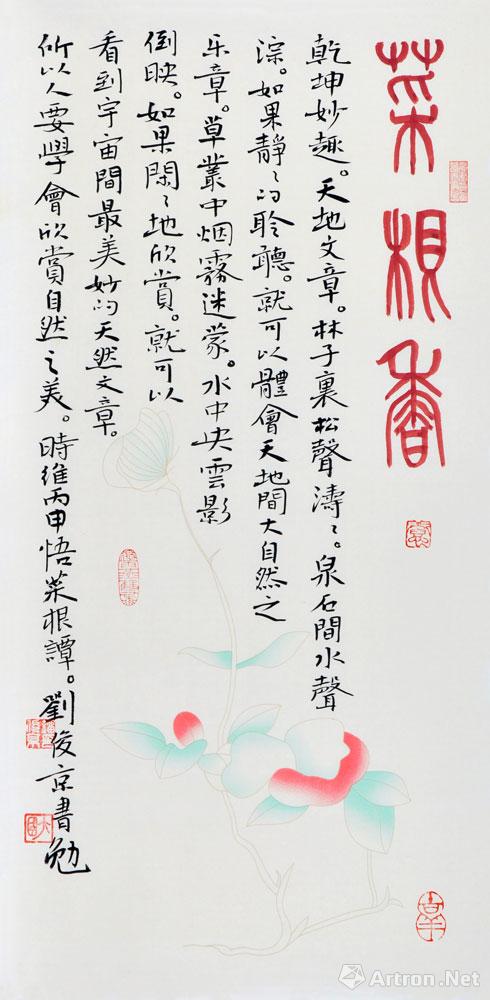 菜根香
乾坤妙趣。天地文章。林子裏松聲濤〻。泉石間水聲
淙。如果靜〻的聆聽。就可以體會天地間大自然之
乐章。草叢中烟霧迷蒙。水中央雲影
倒映。如果閑〻地欣賞。就可以
看到宇宙間最美妙的天然文章。
所以人要學會欣賞自然之美。時維丙申悟菜根譚。劉俊京書勉
Artron.Net